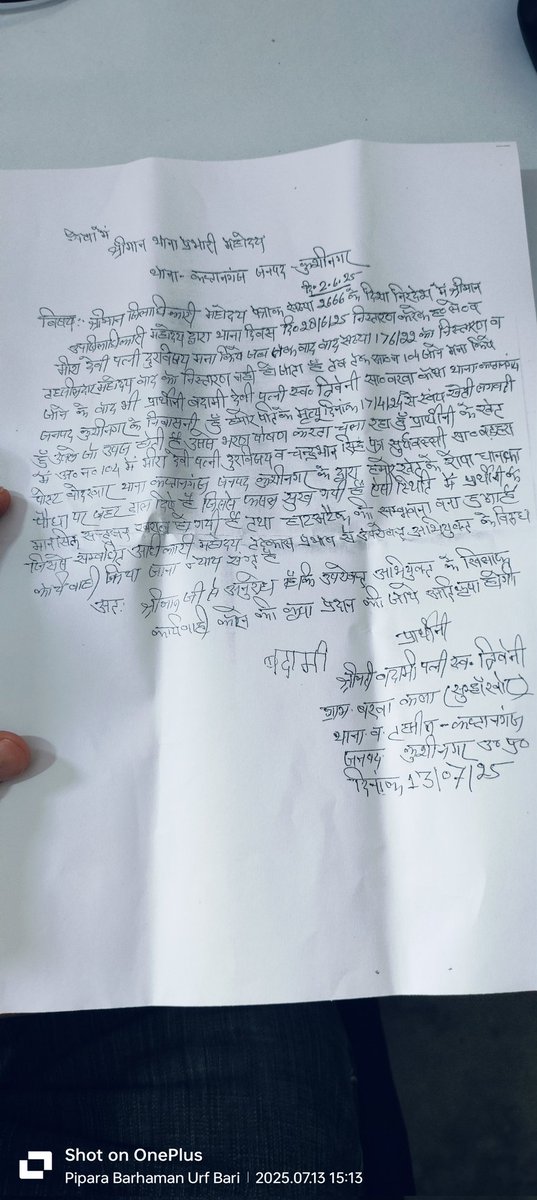 सेवा में
श्रीमान थाना प्रभारी महोदय
थाना- कप्तानगंज जनपद - कुशीनगर
दि. 2.6.25
विषय:- श्रीमान जिलाधिकारी महोदय पत्रांक संख्या 2666 के दिशा निर्देश में श्रीमान
उपजिलाधिकारी महोदय द्वारा थाना दिवस दि० 28/6/25 निस्तारण करके
मीरा देवी पत्नी दुरविषय मना किये जब तक वाद संख्या 176/22 का निस्तारण व
तहसीलदार महोदय वाद का निस्तारण नहीं हो जाता है तब तक
जाने के बाद भी प्रार्थीनी बदामी देवी पत्नी स्व० त्रिवेनी सा० बरवा कला थाना कप्तानगंज
जनपद कुशीनगर के निवासनी हूँ हमारे पति का मृत्यु दिनांक 17/4/24 से स्वयं खेती
हूँ जो उपज होती है उससे भरण पोषण करता चला रहा हूँ प्रार्थीनी के खेत
में मीरा देवी पत्नी दुरविषय व चन्द्रभान सिंह पुत्र
पोस्ट थाना कप्तानगंज जनपद कुशीनगर के द्वारा हमारे खेत के रोपा धान का
पौधा पर जहर डाल दिये है जिससे फसल सुख गयी है ऐसी स्थिति में प्रार्थीनी के
मानसिक सन्तुलन खराब हो गयी है तथा हार्ट अटैक की सम्भावना बना हुआ है
जिसमें सम्बन्धित अधिकारी महोदय तत्काल प्रभाव से उपरोक्त अभियुक्त के विरुध
कार्यवाही किया जाना न्याय संगत है
अतः श्रीमान जी से अनुरोध है कि उपरोक्त अभियुक्त के खिलाफ
कार्यवाही करने की कृपा प्रदान की जाये अति कृपा होगी
प्रार्थीनी
बदामी
श्रीमती बदामी पत्नी स्व. त्रिवेनी
ग्राम- बरवा कला
थाना व तहसील - कप्तानगंज
जनपद कुशीनगर उ० प्र०
दिनांक 13/07/25
Shot on OnePlus
Pipara Barhaman Urf Bari | 2025.07.13 15:13